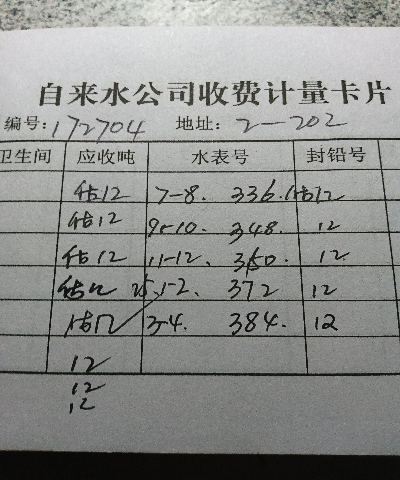 自来水公司收费计量卡片
编号:172704 地址:2-202
卫生间 应收吨 水表号 封铅号
估12 7-8. 336.(估12
估12 9-10. 348. 12
估12 11-12. 360. 12
估12 25.1-2. 372 12
估12 3-4. 384. 12
12
12
12